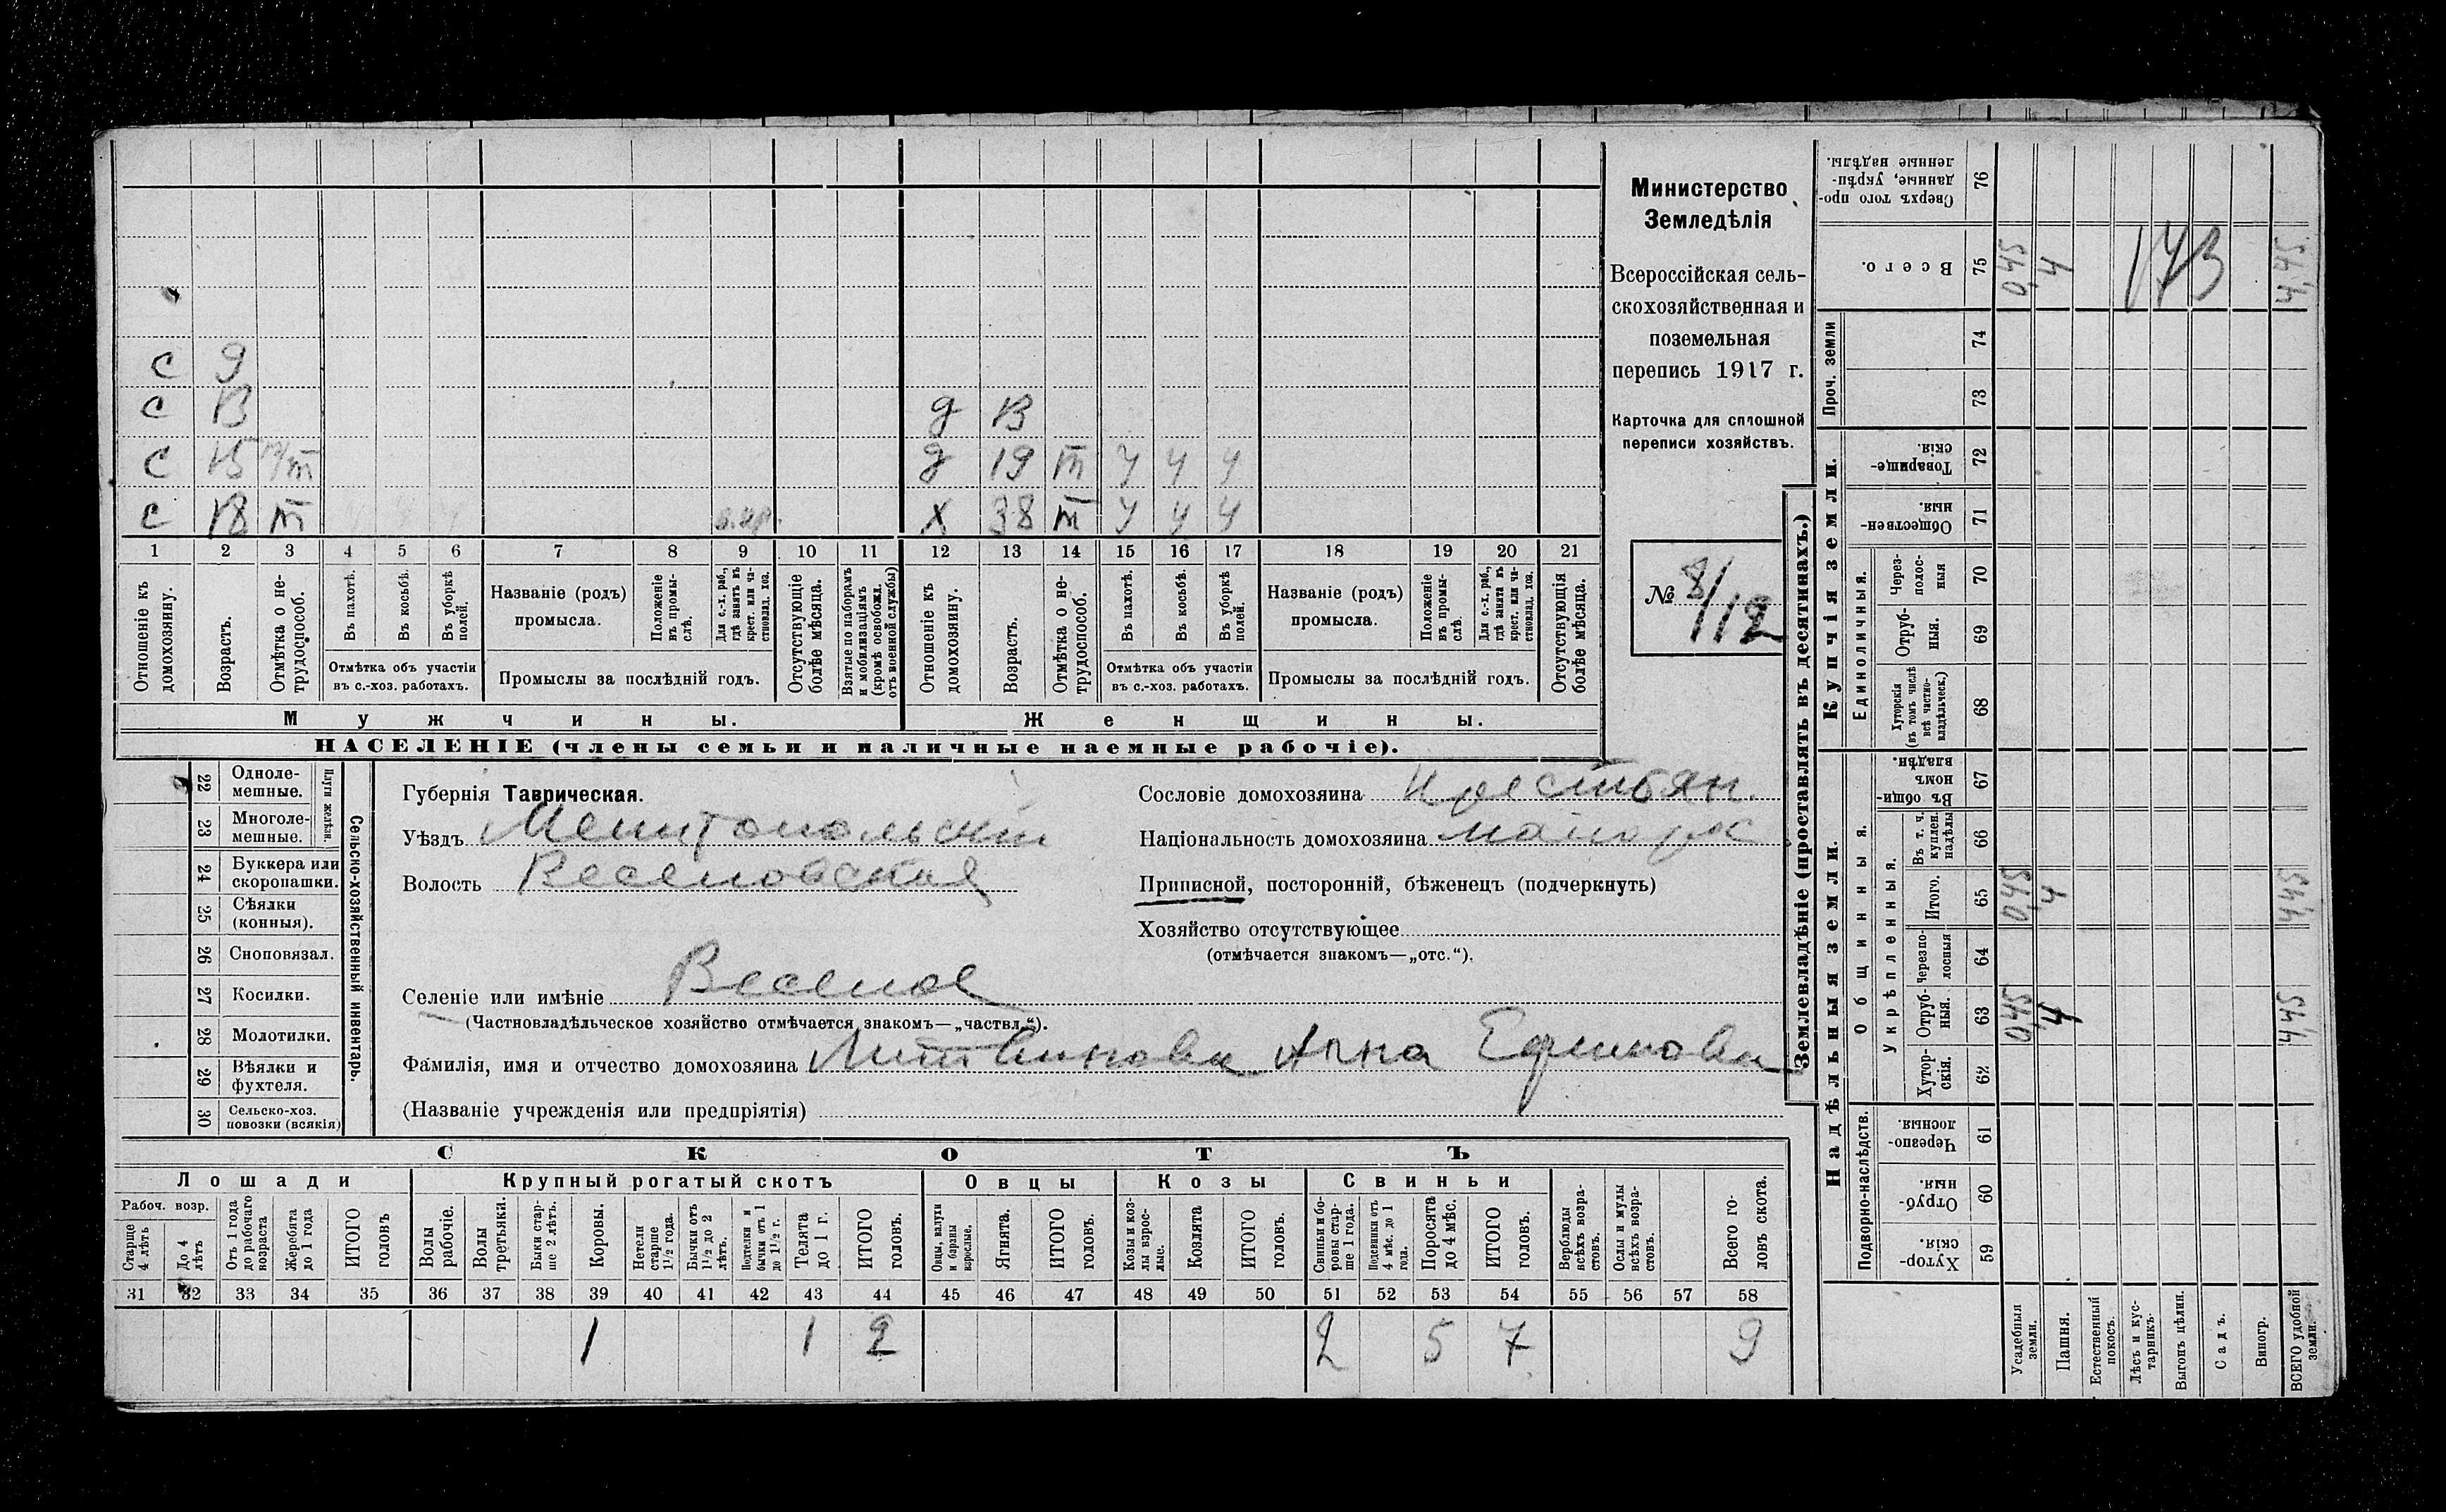 Министерство
Земледѣлія
Всероссійская сель-
скохозяйственная и
поземельная
перепись 1917 г.
Карточка для сплошной
переписи хозяйствъ.
№ 8/112
с 9
с 13 д 13
с 15 п/т д 19 т ч ч ч
с 18 т х 38 т ч ч ч
1 2 3 4 5 6 7 8 9 10 11 12 13 14 15 16 17 18 19 20 21
Отношеніе къ домохозяину.
Возрастъ.
Отмѣтка о не-трудоспособ.
Въ пахотѣ.
Въ косьбѣ.
Въ уборкѣ полей.
Отмѣтка объ участіи
въ с.-хоз. работахъ.
Названіе (родъ)
промысла.
Положеніе въ промы-слѣ.
Для с.-х. раб., гдѣ занятъ въ крест. или ча-стновлад. хоз.
Промыслы за послѣдній годъ.
Отсутствующіе болѣе мѣсяца.
Взятые по наборамъ и мобилизаціямъ (кромѣ освобожд. отъ военной службы)
Отношеніе къ домохозяину.
Возрастъ.
Отмѣтка о не-трудоспособ.
Въ пахотѣ.
Въ косьбѣ.
Въ уборкѣ полей.
Отмѣтка объ участіи
въ с.-хоз. работахъ.
Названіе (родъ)
промысла.
Положеніе въ промы-слѣ.
Для с.-х. раб., гдѣ занята въ крест. или ча-стновлад. хоз.
Промыслы за послѣдній годъ.
Отсутствующія болѣе мѣсяца.
Мужчины. Женщины.
НАСЕЛЕНІЕ (члены семьи и наличные наемные рабочіе).
22 Одноле-мешные.
23 Многоле-мешные.
Плуги желѣзн.
24 Буккера или скоропашки.
25 Сѣялки (конныя).
26 Сноповязал.
27 Косилки.
28 Молотилки.
29 Вѣялки и фухтеля.
30 Сельско-хоз. повозки (всякія)
Сельско-хозяйственный инвентарь.
Губернія Таврическая.
Уѣздъ Мелитопольскій
Волость Веселовская
Сословіе домохозяина Крестьян.
Національность домохозяина малорос
Приписной, посторонній, бѣженецъ (подчеркнуть)
Хозяйство отсутствующее
(отмѣчается знакомъ—„отс.“).
Селеніе или имѣніе Веселое
(Частновладѣльческое хозяйство отмѣчается знакомъ—„частвл.“).
Фамилія, имя и отчество домохозяина Литвинова Анна Ефимова
(Названіе учрежденія или предпріятія)
СКОТЪ
Лошади Крупный рогатый скотъ Овцы Козы Свиньи
Рабоч. возр.
Старше 4 лѣтъ
До 4 лѣтъ
Отъ 1 года до рабочаго возраста
Жеребята до 1 года
ИТОГО головъ
Волы рабочіе.
Волы третьяки.
Быки стар-ше 2 лѣтъ.
Коровы.
Нетели старше 1½ года.
Бычки отъ 1½ до 2 лѣтъ.
Подтелки и бычки отъ 1 до 1½ г.
Телята до 1 г.
ИТОГО головъ.
Овцы, валухи и бараны взрослые.
Ягнята.
ИТОГО головъ.
Козы и коз-лы взрос-лые.
Козлята
ИТОГО головъ.
Свиньи и бо-ровы стар-ше 1 года.
Подсвинки отъ 4 мѣс. до 1 года.
Поросята до 4 мѣс.
ИТОГО головъ.
Верблюды всѣхъ возра-стовъ.
Ослы и мулы всѣхъ возра-стовъ.
Всего го-ловъ скота.
31 32 33 34 35 36 37 38 39 40 41 42 43 44 45 46 47 48 49 50 51 52 53 54 55 56 57 58
1 1 2 2 5 7 9
Землевладѣніе (проставлять въ десятинахъ.)
Надѣльныя земли. Купчія земли. Проч. земли
Подворно-наслѣдств.
Общинныя.
Укрѣпленныя.
Единоличныя.
Сверхъ того про-данные, укрѣп-ленные надѣлы. 76
Всего. 75 0,45 4 173 4,45
74
73
Товарище-скія 72
Обществен-ныя. 71
Через-полос-ныя 70
Отруб-ныя. 69
Хуторскія (въ томъ числѣ всѣ частно-владѣльческ.) 68
Въ общин-номъ владѣн. 67
Въ т. ч. куплен. надѣлы 66
Итого. 65 0,45 4 4,45
Черезпо-лосныя 64
Отруб-ныя. 63 0,45 4 4,45
Хутор-скія. 62
Черезпо-лосныя. 61
Отруб-ныя. 60
Хутор-скія. 59
Усадебныя земли.
Пашня.
Естественный покосъ.
Лѣсъ и кус-тарникъ.
Выгонъ цѣлин.
Садъ.
Виногр.
ВСЕГО удобной земли.